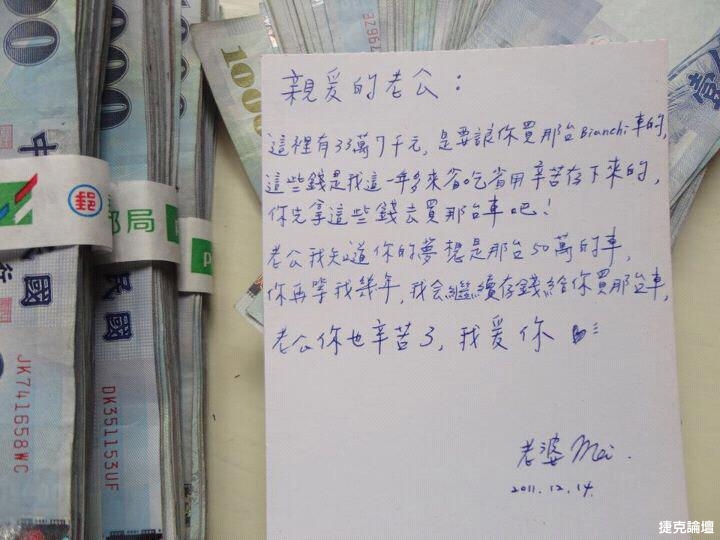 親爱的老公：
這裡有33萬7千元，是要讓你買那台Bianchi車的，
這些錢是我這一年多來省吃省用辛苦存下來的，
你先拿這些錢去買那台車吧！
老公我知道你的夢想是那台50萬的車，
你再等我幾年，我会繼續存錢給你買那台車，
老公你也辛苦了，我爱你
老婆Mei.
2011.12.14.
000
中
民國
行
JK741658WC
000
民國
DK351153UF
郵
郵局
P
1000
捷克論壇